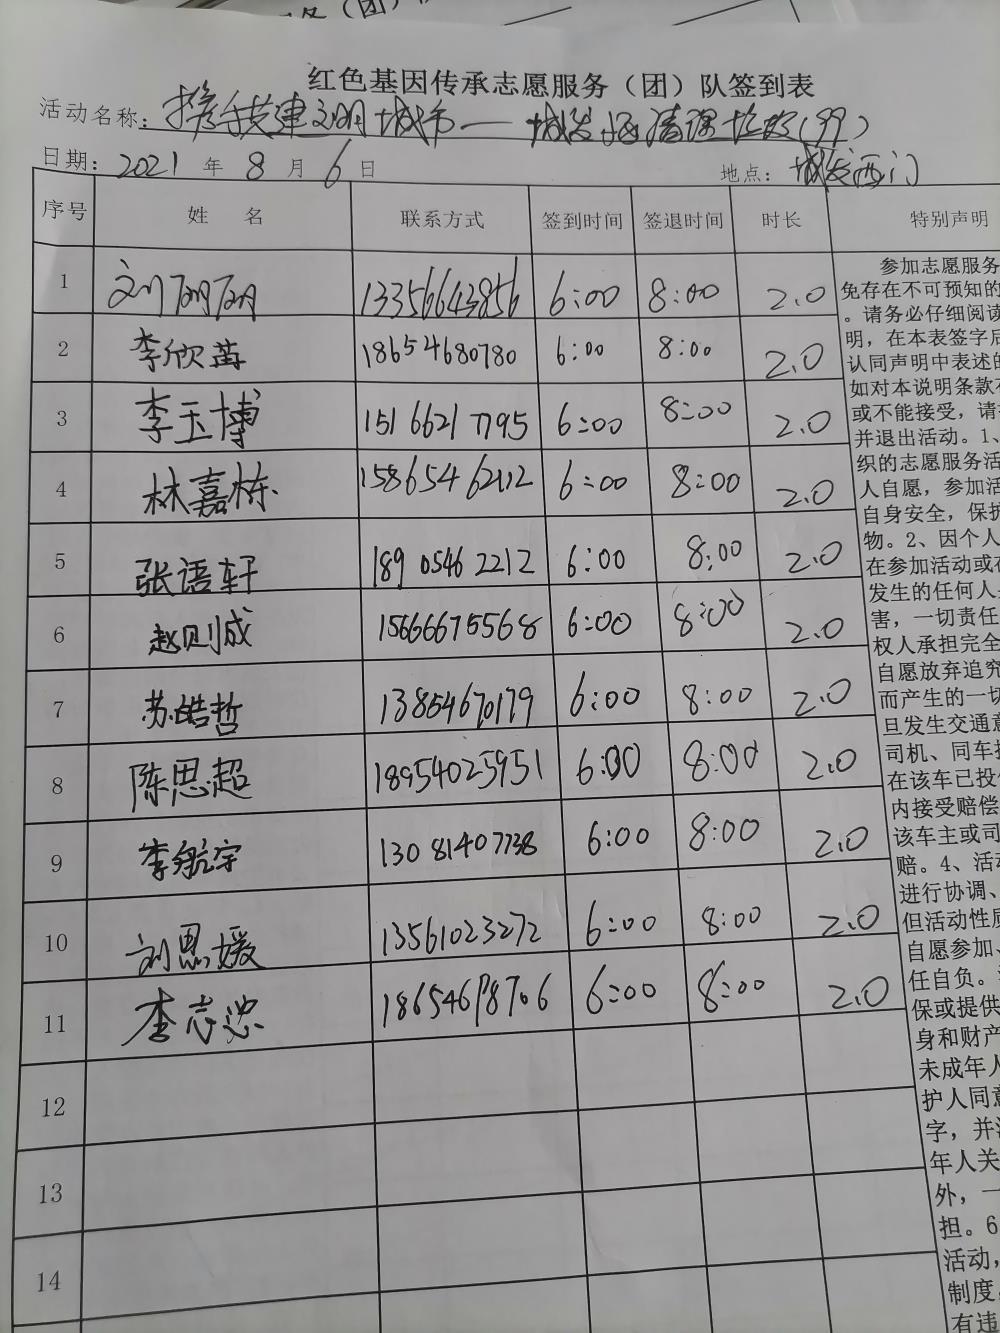 红色基因传承志愿服务（团）队签到表
活动名称：携手共建文明城市——城发 清理垃圾（99）
日期：2021年8月6日 地点：城发西门
序号 姓 名 联系方式 签到时间 签退时间 时长 特别声明
1 刘丽丽 13356643856 6:00 8:00 2.0
2 李欣苒 18654680780 6:00 8:00 2.0
3 李玉博 15166217795 6:00 8:00 2.0
4 林嘉栋 15865462112 6:00 8:00 2.0
5 张语轩 18905462212 6:00 8:00 2.0
6 赵则成 15666675568 6:00 8:00 2.0
7 苏皓哲 13854670179 6:00 8:00 2.0
8 陈思超 18954025951 6:00 8:00 2.0
9 李航宇 13081407738 6:00 8:00 2.0
10 刘思媛 13561023272 6:00 8:00 2.0
11 李志忠 18654678706 6:00 8:00 2.0
12
13
14
参加志愿服务
免存在不可预知的
。请务必仔细阅读
明，在本表签字后
认同声明中表述的
如对本说明条款
或不能接受，请
并退出活动。1、
织的志愿服务活
人自愿，参加活
自身安全，保护
物。2、因个人
在参加活动或
发生的任何人
害，一切责任
权人承担完全
自愿放弃追究
而产生的一切
旦发生交通意
司机、同车
在该车已投
内接受赔偿
该车主或司
赔。4、活动
进行协调、
但活动性质
自愿参加、
任自负。
保或提供
身和财产
未成年人
护人同意
字，并
年人关
外，一
担。6
活动，
制度，
有违